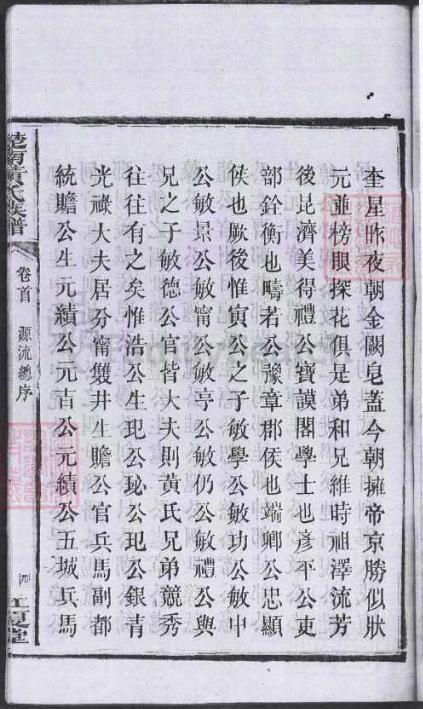 奎星昨夜朝金闕皂蓋今朝擁帝京勝似狀
元並榜眼探花俱是弟和兄維時祖澤流芳
後昆濟美得禮公寶謨閣學士也彦平公吏
部銓衡也疇若公豫章郡侯也端卿公忠顯
侯也厥後惟寅公之子敏學公敏功公敏中
公敏景公敏甯公敏亭公敏仍公敏禮公與
兄之子敏德公官皆大夫則黃氏兄弟競秀
往往有之矣惟浩公生玘公珌公玘公銀青
光祿大夫居分甯雙井生贍公官兵馬副都
統贍公生元績公元吉公元績公五城兵馬
楚南黃氏族譜
卷首
源流總序
四
江夏堂